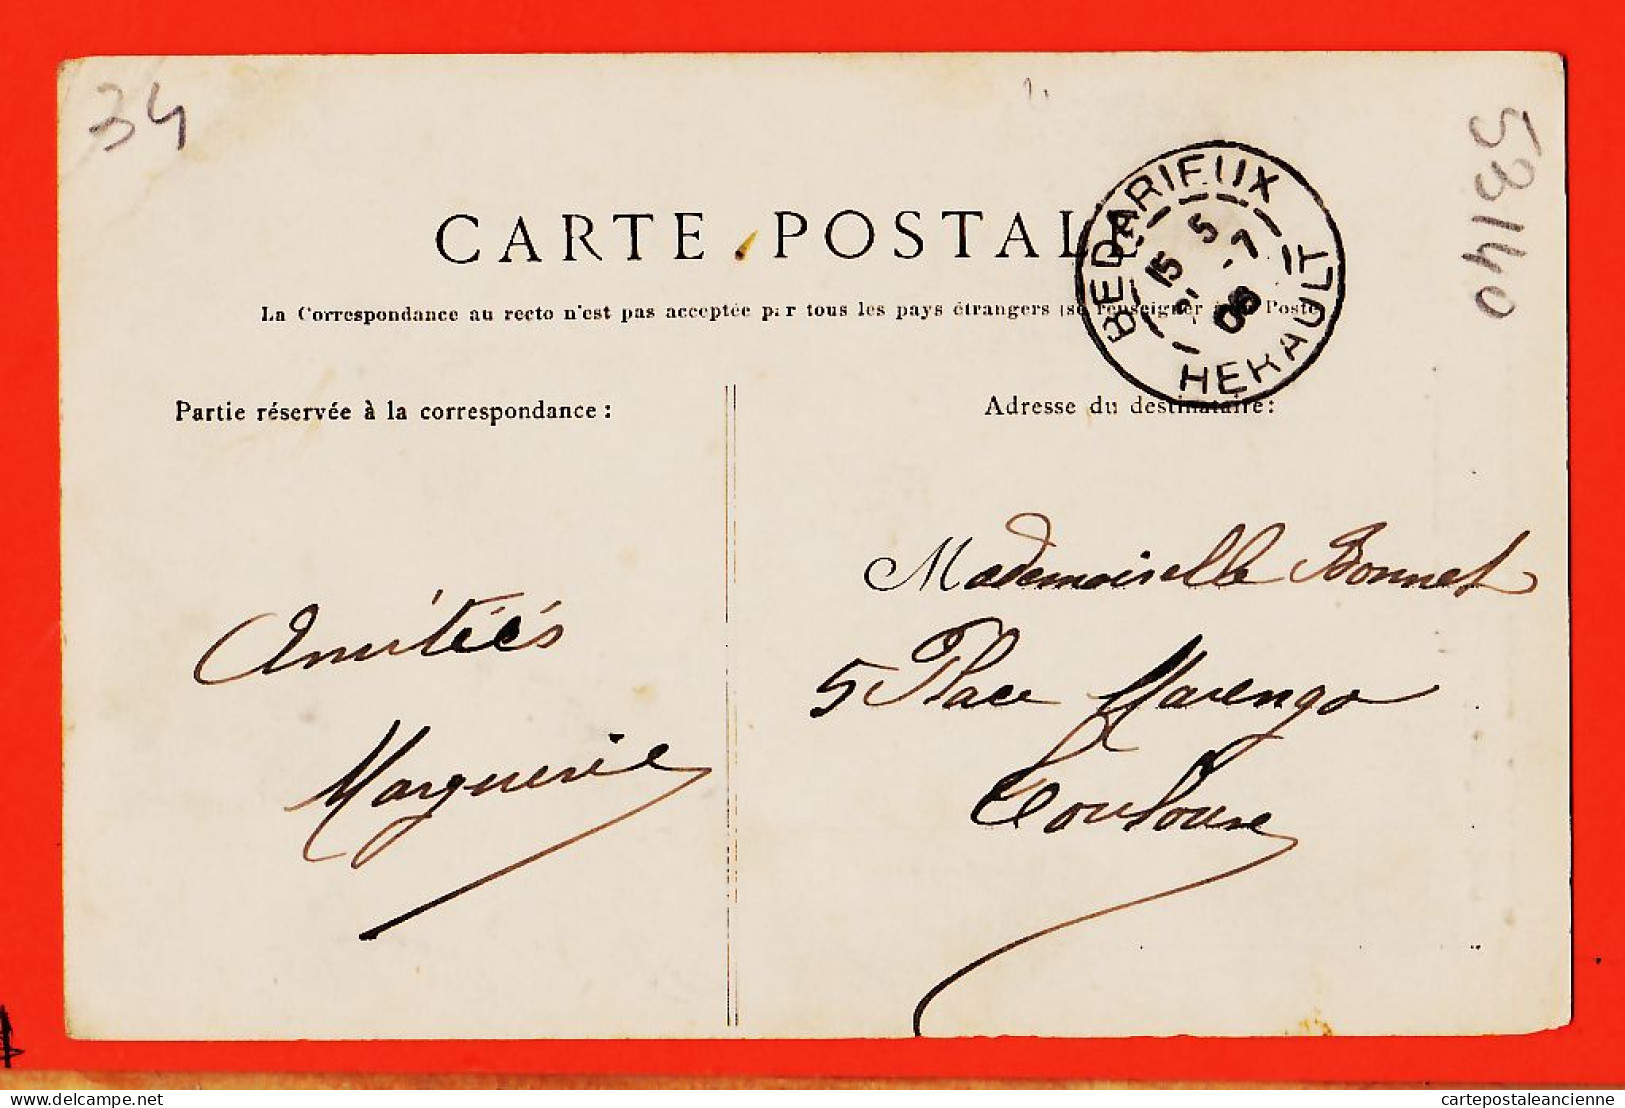 34
53140
CARTE POSTALE
BEDARIEUX
15 5
5 -7
06
HERAULT
La Correspondance au recto n'est pas acceptée par tous les pays étrangers (se renseigner à la Poste
Partie réservée à la correspondance :
Adresse du destinataire :
Amitiés
Marguerie
Mademoiselle Bonnet
5 Place Marengo
Toulouse
cartepostaleancienne